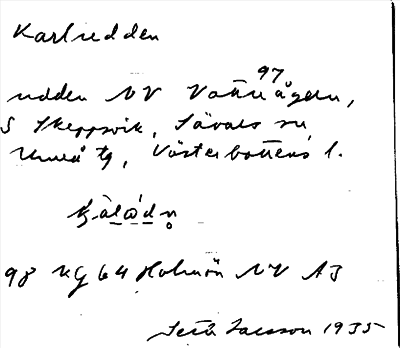 Karlsudden
97
udden NV Vattuågern,
S Skeppsvik, Sävars sn,
Umeå tg, Västerbottens l.
98 KG 64 Holmön NV A3
Larsson 1935